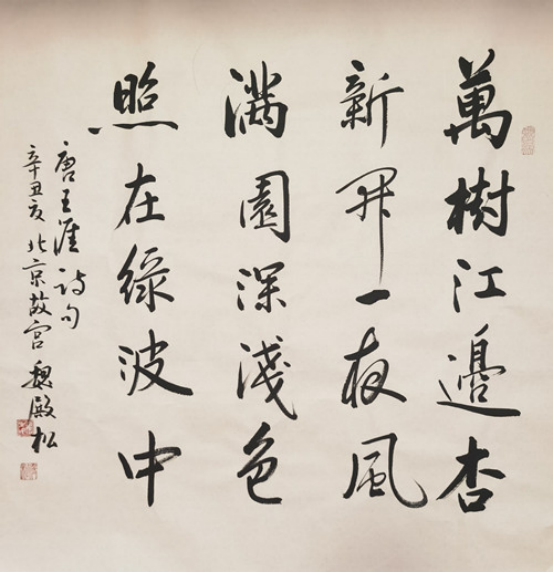 萬樹江邊杏
新開一夜風
滿園深淺色
照在綠波中
唐王涯詩句
辛丑夜北京故宮魏殿松